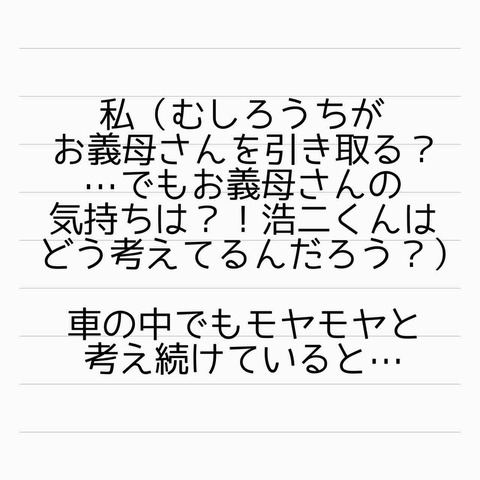 私（むしろうちが
お義母さんを引き取る？
…でもお義母さんの
気持ちは？！浩二くんは
どう考えてるんだろう？）
車の中でもモヤモヤと
考え続けていると…